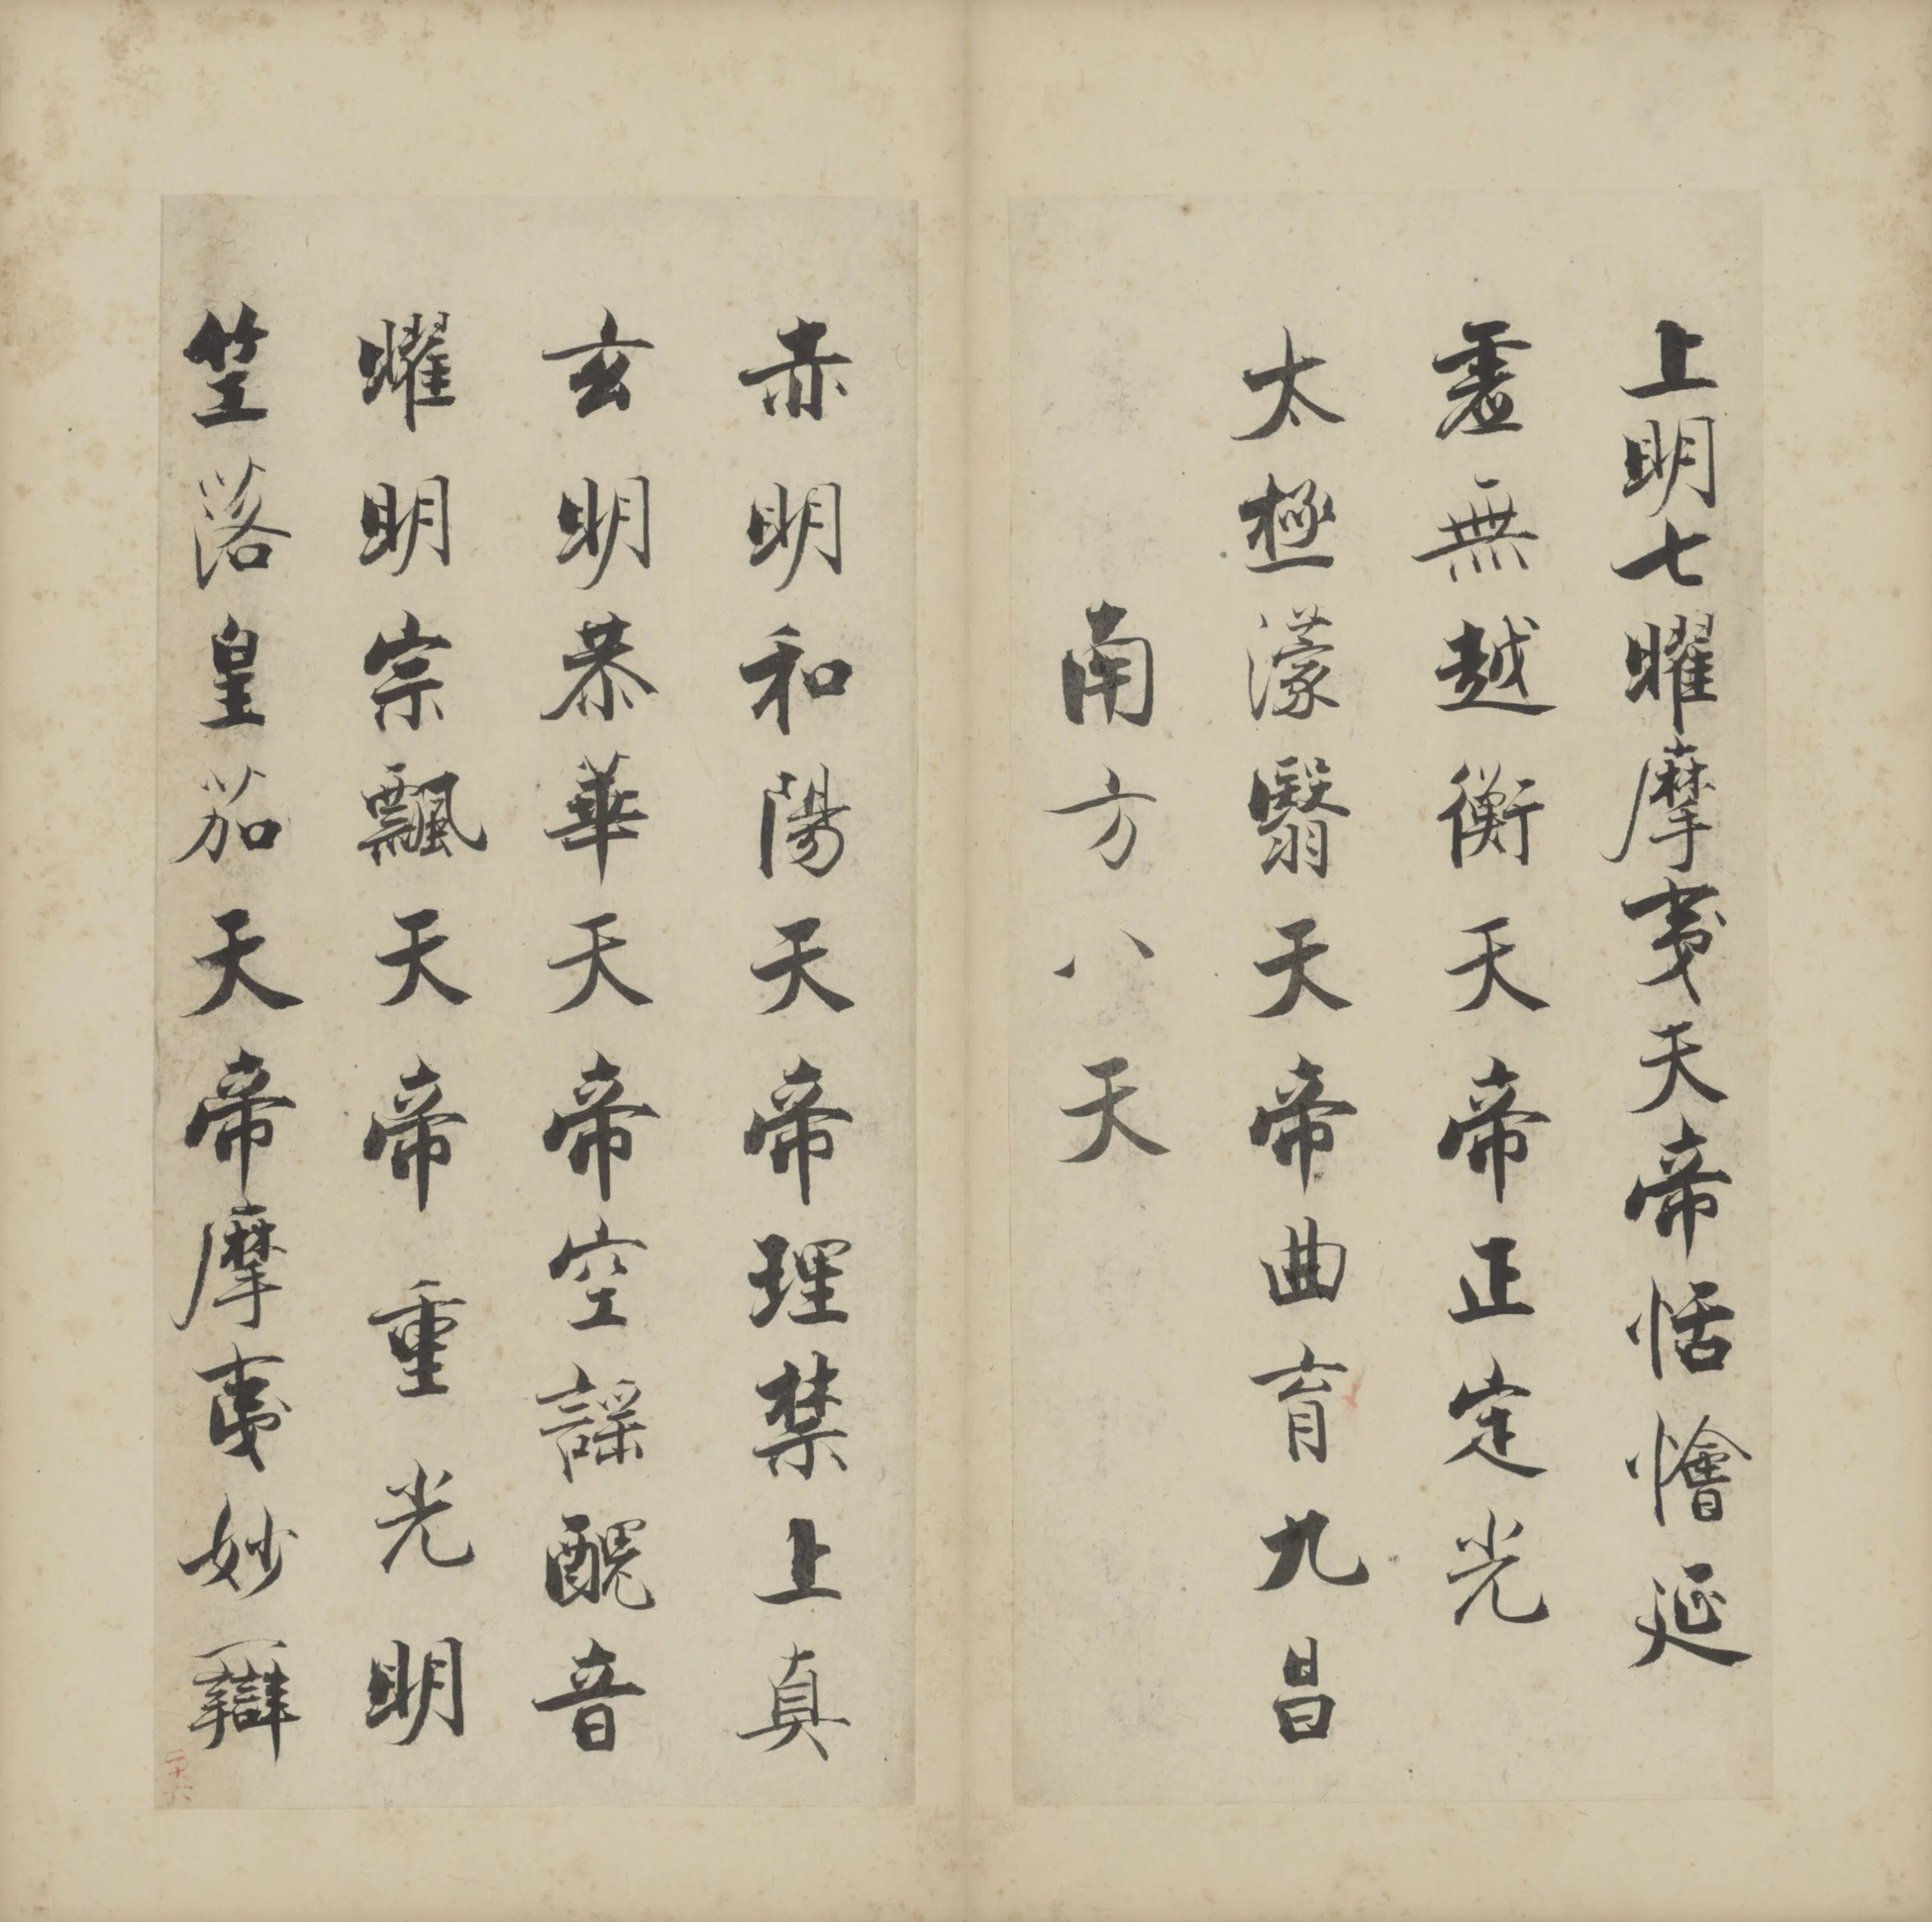 上明七曜摩夷天帝恬懀延
虛無越衡天帝正定光
太極濛翳天帝曲育九昌
南方八天
赤明和陽天帝理禁上真
玄明恭華天帝空謡醜音
曜明宗飄天帝重光明
竺落皇茄天帝摩夷妙辯
二十六